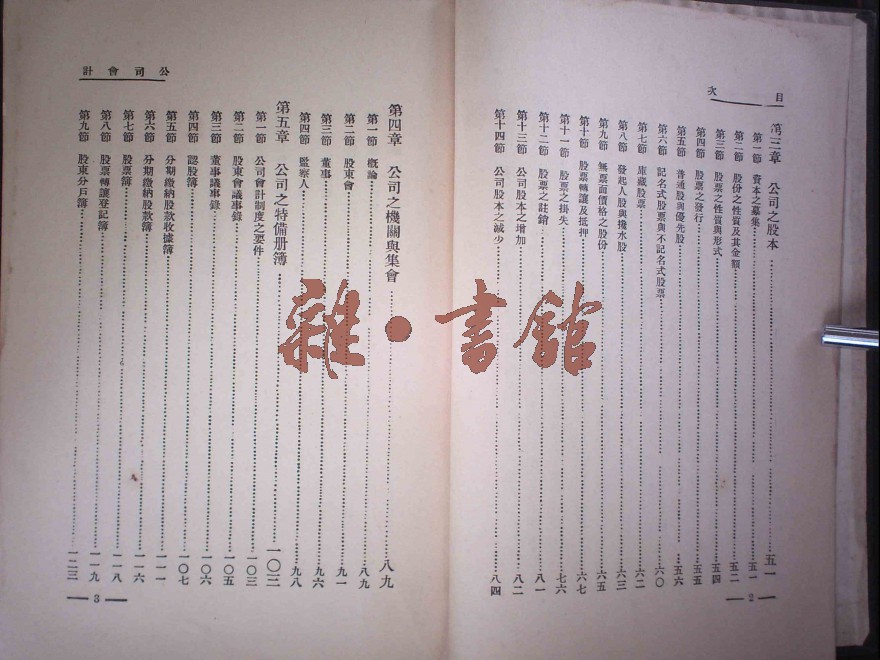 目次
第三章 公司之股本……五一
第一節 資本之募集……五一
第二節 股份之性質及其金額……五二
第三節 股票之性質與形式……五四
第四節 股票之發行……五五
第五節 普通股與優先股……五六
第六節 記名式股票與不記名式股票……六〇
第七節 庫藏股票……六二
第八節 發起人股與攙水股……六三
第九節 無票面價格之股份……六五
第十節 股票轉讓及抵押……六七
第十一節 股票之掛失……七六
第十二節 股票之註銷……八一
第十三節 公司股本之增加……八二
第十四節 公司股本之減少……八四
2
公司會計
第四章 公司之機關與集會……八九
第一節 概論……八九
第二節 股東會……九一
第三節 董事……九六
第四節 監察人……九八
第五章 公司之特備册簿……一〇三
第一節 公司會計制度之要件……一〇三
第二節 股東會議事錄……一〇五
第三節 董事議事錄……一〇六
第四節 認股簿……一〇七
第五節 分期繳納股款收據簿……一一一
第六節 分期繳納股款簿……一一六
第七節 股票簿……一一八
第八節 股票轉讓登記簿……一一九
第九節 股東分戶簿……一二三
3
雜·書館